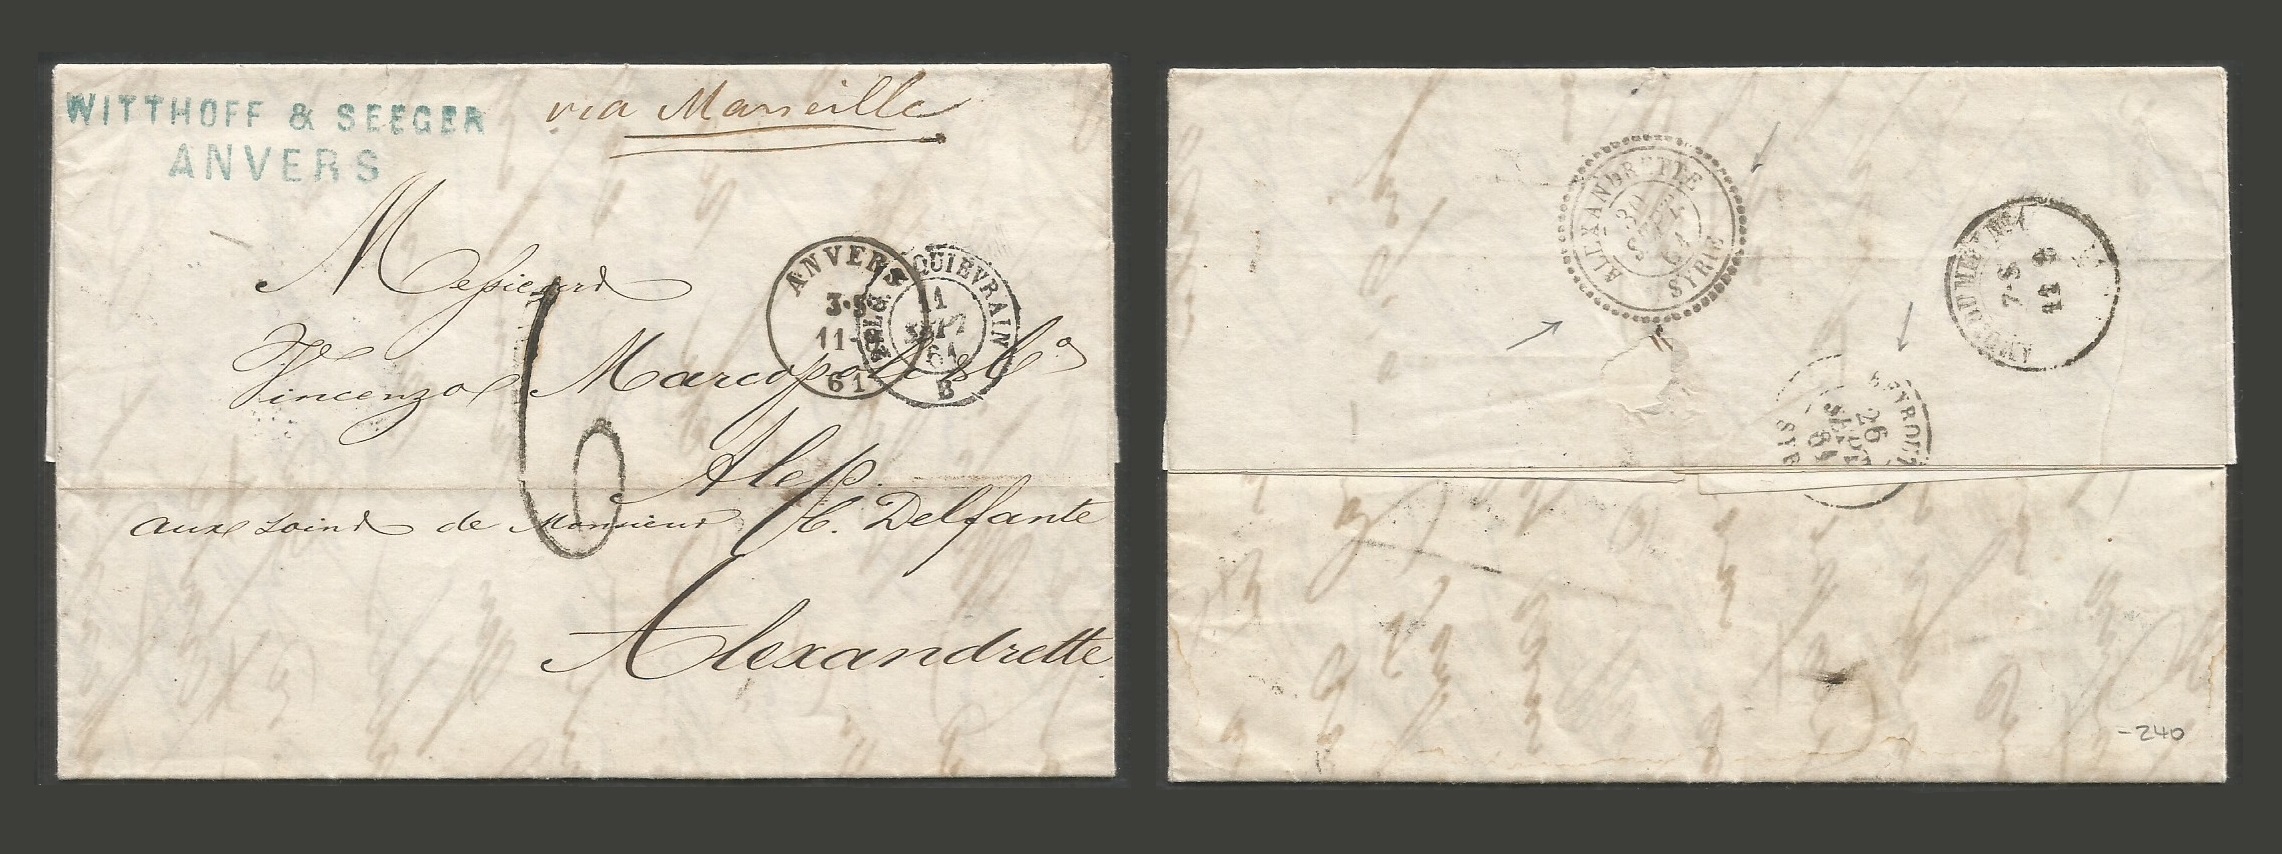 WITTHOFF & SEEGER
ANVERS
via Marseille
Messieurs
Vincenzo Marcopoli & Co
Alep.
aux soins de Monsieur C. Delfante
Alexandrette
6
ANVERS
3-S
11
61
BELG.
QUIÉVRAIN
11
SEPT
61
B
ALEXANDRETTE
30
SEPT
61
SYRIE
AMB. DU MIDI No 1
7-S
11 S
BEYROUT
26
SEPT
61
SYR
-240